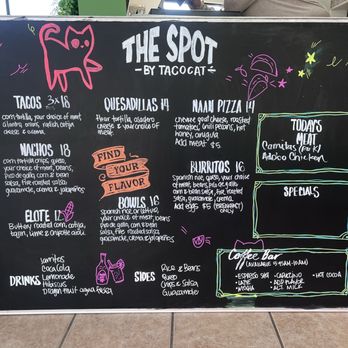 THE SPOT
- BY TACOCAT -
TACOS 3x 18
corn tortilla, your choice of meat,
cilantro, onions, radish, cotija
cheese & crema
QUESADILLAS 14
flour tortilla, oaxaca
cheese & your choice
of meat
NAAN PIZZA 14
chevre goat cheese, roasted
tomatoes, chili pecans, hot
honey, arugula
Add meat $5
NACHOS 18
corn tortilla chips, queso,
your choice of meat, beans,
pico de gallo, corn & bean
salsa, fire roasted salsa
guacamole, crema & jalapeños
FIND
YOUR
FLAVOR
BURRITOS 16
Spanish rice, queso, your choice
of meat, beans, pico de gallo
corn & bean salsa, fire roasted
salsa, guacamole, crema,
Add eggs $5 (BREAKFAST)
ONLY
BOWLS 16
Spanish rice, or lettuce,
your choice of meat, beans,
pico de gallo, corn & bean
salsa, fire roasted salsa,
guacamole, crema & jalapeños
ELOTE 12
Buttery roasted corn, cotija,
tajin, lime & chipotle aioli
TODAY'S
MEAT
Carnitas (pork)
Adobo Chicken
SPECIALS
DRINKS
Jarritos
CocaCola
Lemonade
Hibiscus
Dragon fruit agua fresca
SIDES
Rice & Beans
Queso
Chips & Salsa
Guacamole
Coffee Bar
- ESPRESSO SHOT
- CAPPUCCINO
- HOT COCOA
- LATTE
- ADD FLAVOR
- MOCHA
- ALT. MILK